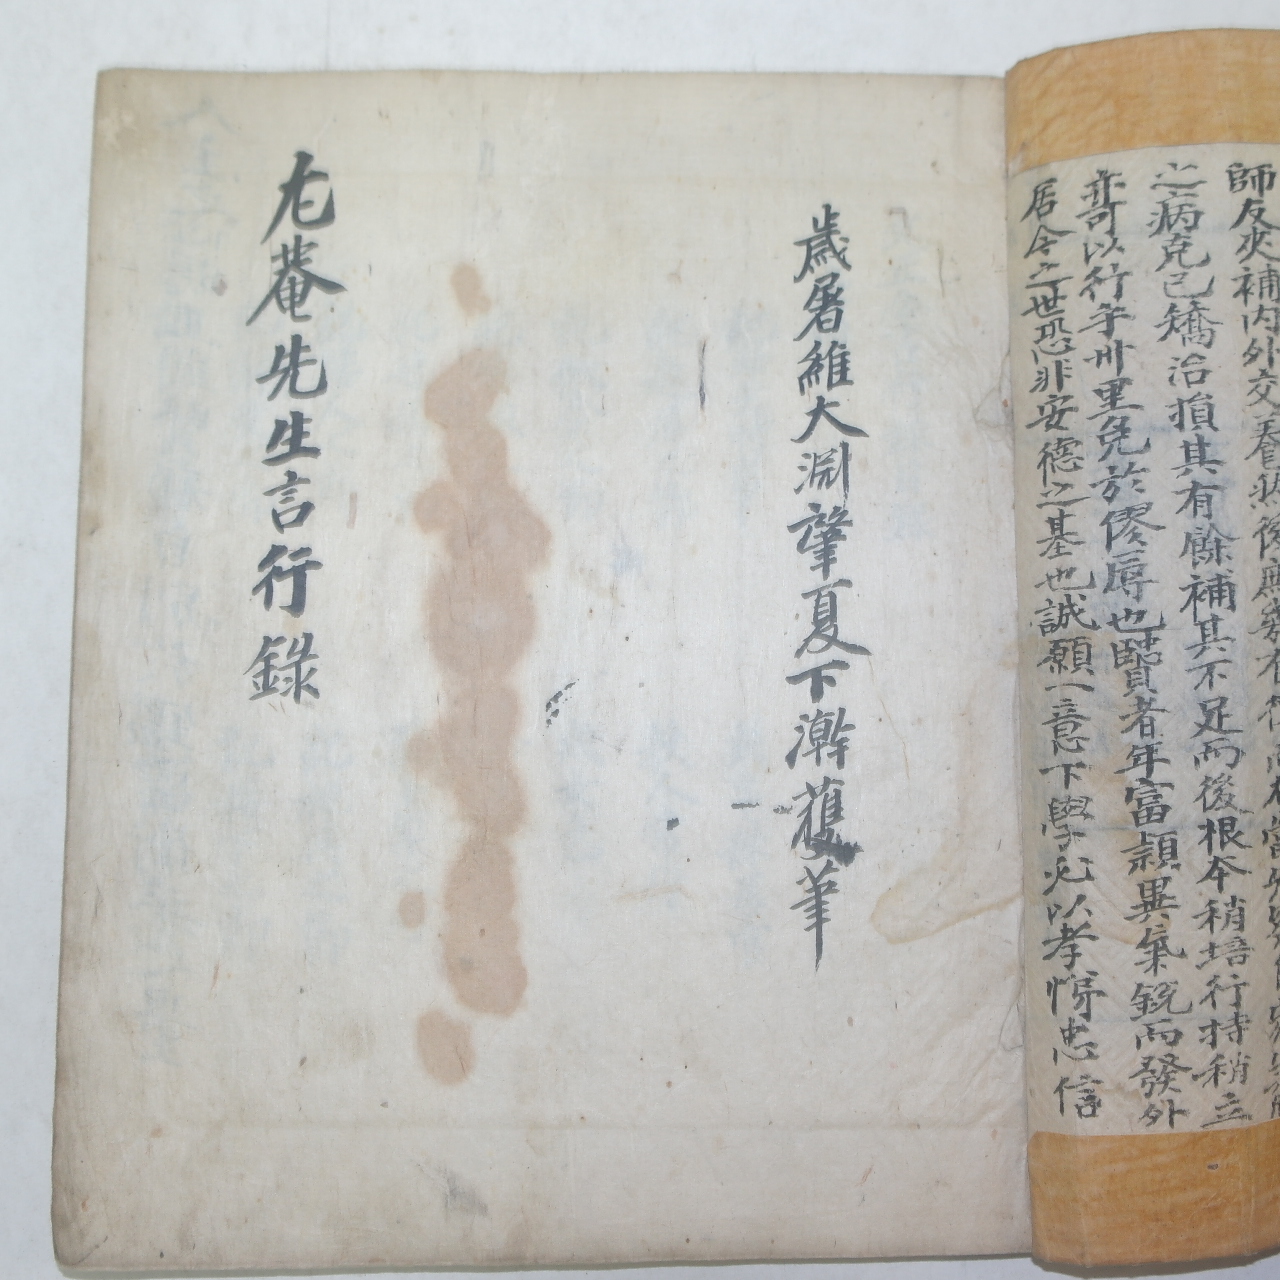 師友夾補內外交養然後庶幾有
之病克己矯治損其有餘補其不足而後根本稍培行持稍立
亦可以行乎州里免於僇辱也賢者年富穎異氣銳而發外
居今之世恐非安德之基也誠願一意下學必以孝悌忠信
歲屠維大淵肇夏下澣蒦筆
尤菴先生言行錄